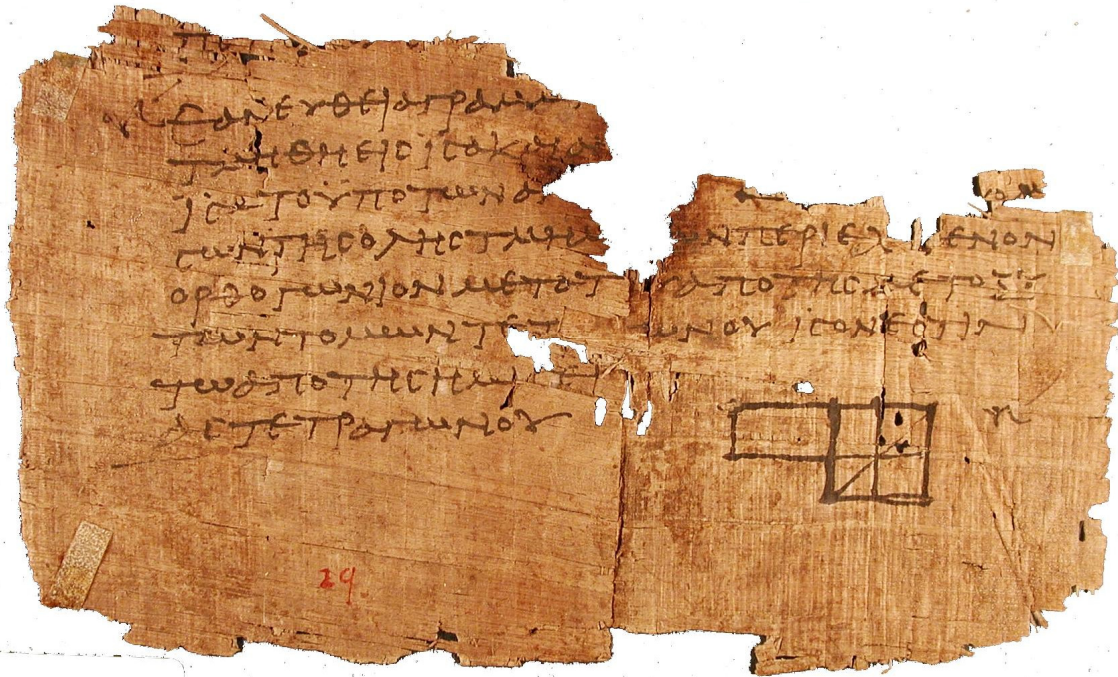 ΕΑΝΕΥΘΕΙΑΓΡΑΜΜ
ΤΜΗΘΗΕΙϹΙϹΑΚΑΙΑΝ
ΙϹΑΤΟΥΠΟΤΩΝΑΝ
ϹΩΝΤΗϹΟΛΗϹΤΜΗΜ Ν ΠΕΡΙΕΧ ΕΝΟΝ
ΟΡΘΟΓΩΝΙΟΝΜΕΤΑΤ ΑΠΟΤΗϹΜΕΤΟΞΥ
ΤΩΝΤΟΜΩΝΤΕΤ ΩΝΟΥΙϹΟΝΕϹΤΙΝ
ΤΩΑΠΟΤΗϹΗΜΙ ΕΙ
ΑϹΤΕΤΡΑΓΩΝΟΥ
29